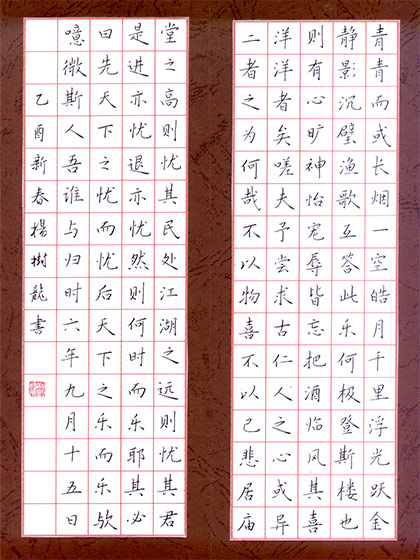 青青而或长烟一空皓月千里浮光跃金
静影沉璧渔歌互答此乐何极登斯楼也
则有心旷神怡宠辱皆忘把酒临风其喜
洋洋者矣嗟夫予尝求古仁人之心或异
二者之为何哉不以物喜不以己悲居庙
堂之高则忧其民处江湖之远则忧其君
是进亦忧退亦忧然则何时而乐耶其必
曰先天下之忧而忧后天下之乐而乐欤
噫微斯人吾谁与归时六年九月十五日
乙酉新春楊樹龍書